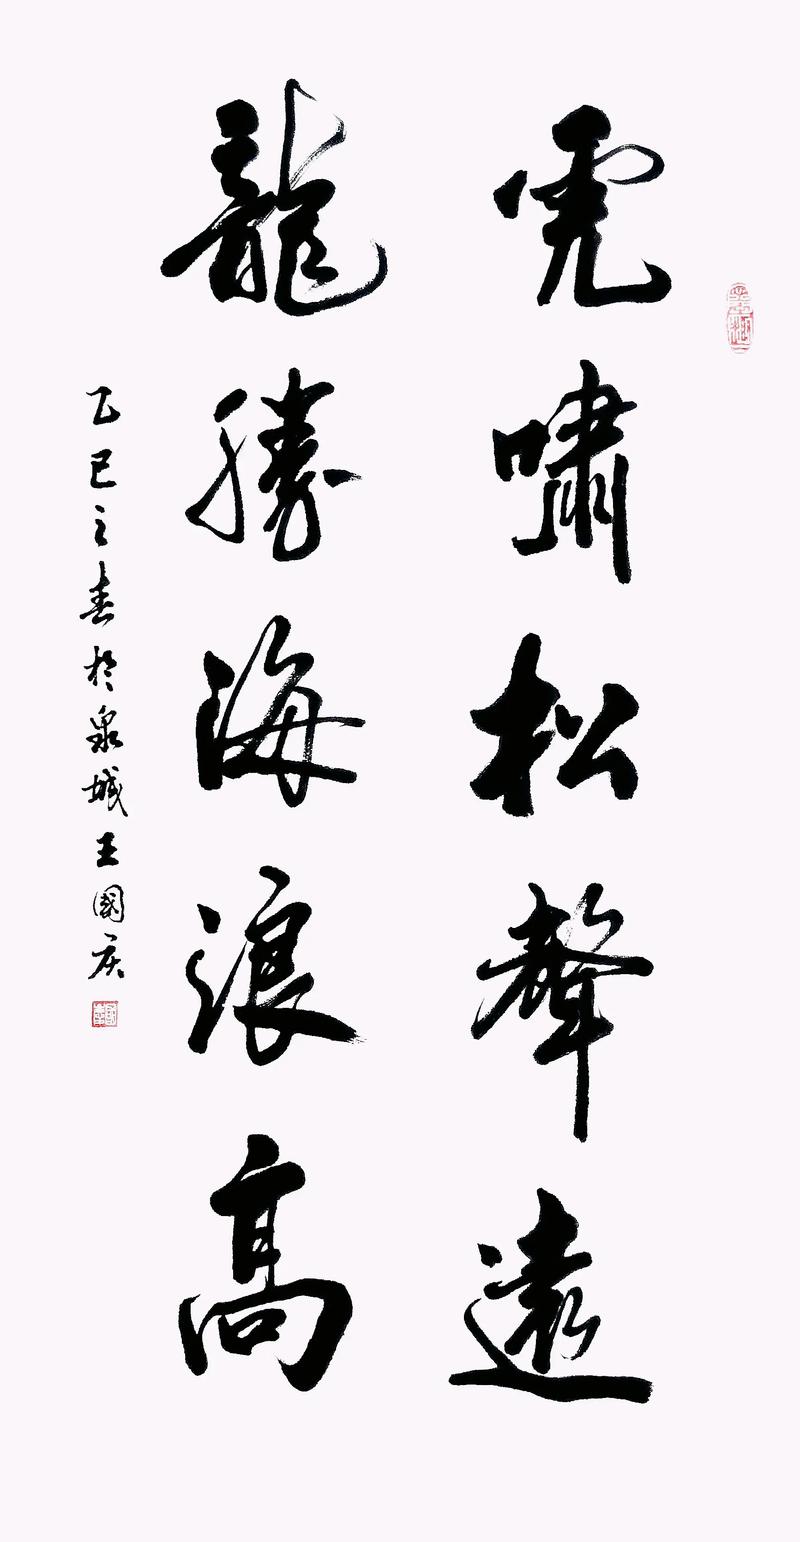 虎嘯松聲遠
龍騰海浪高
乙巳之春於泉城王國庆